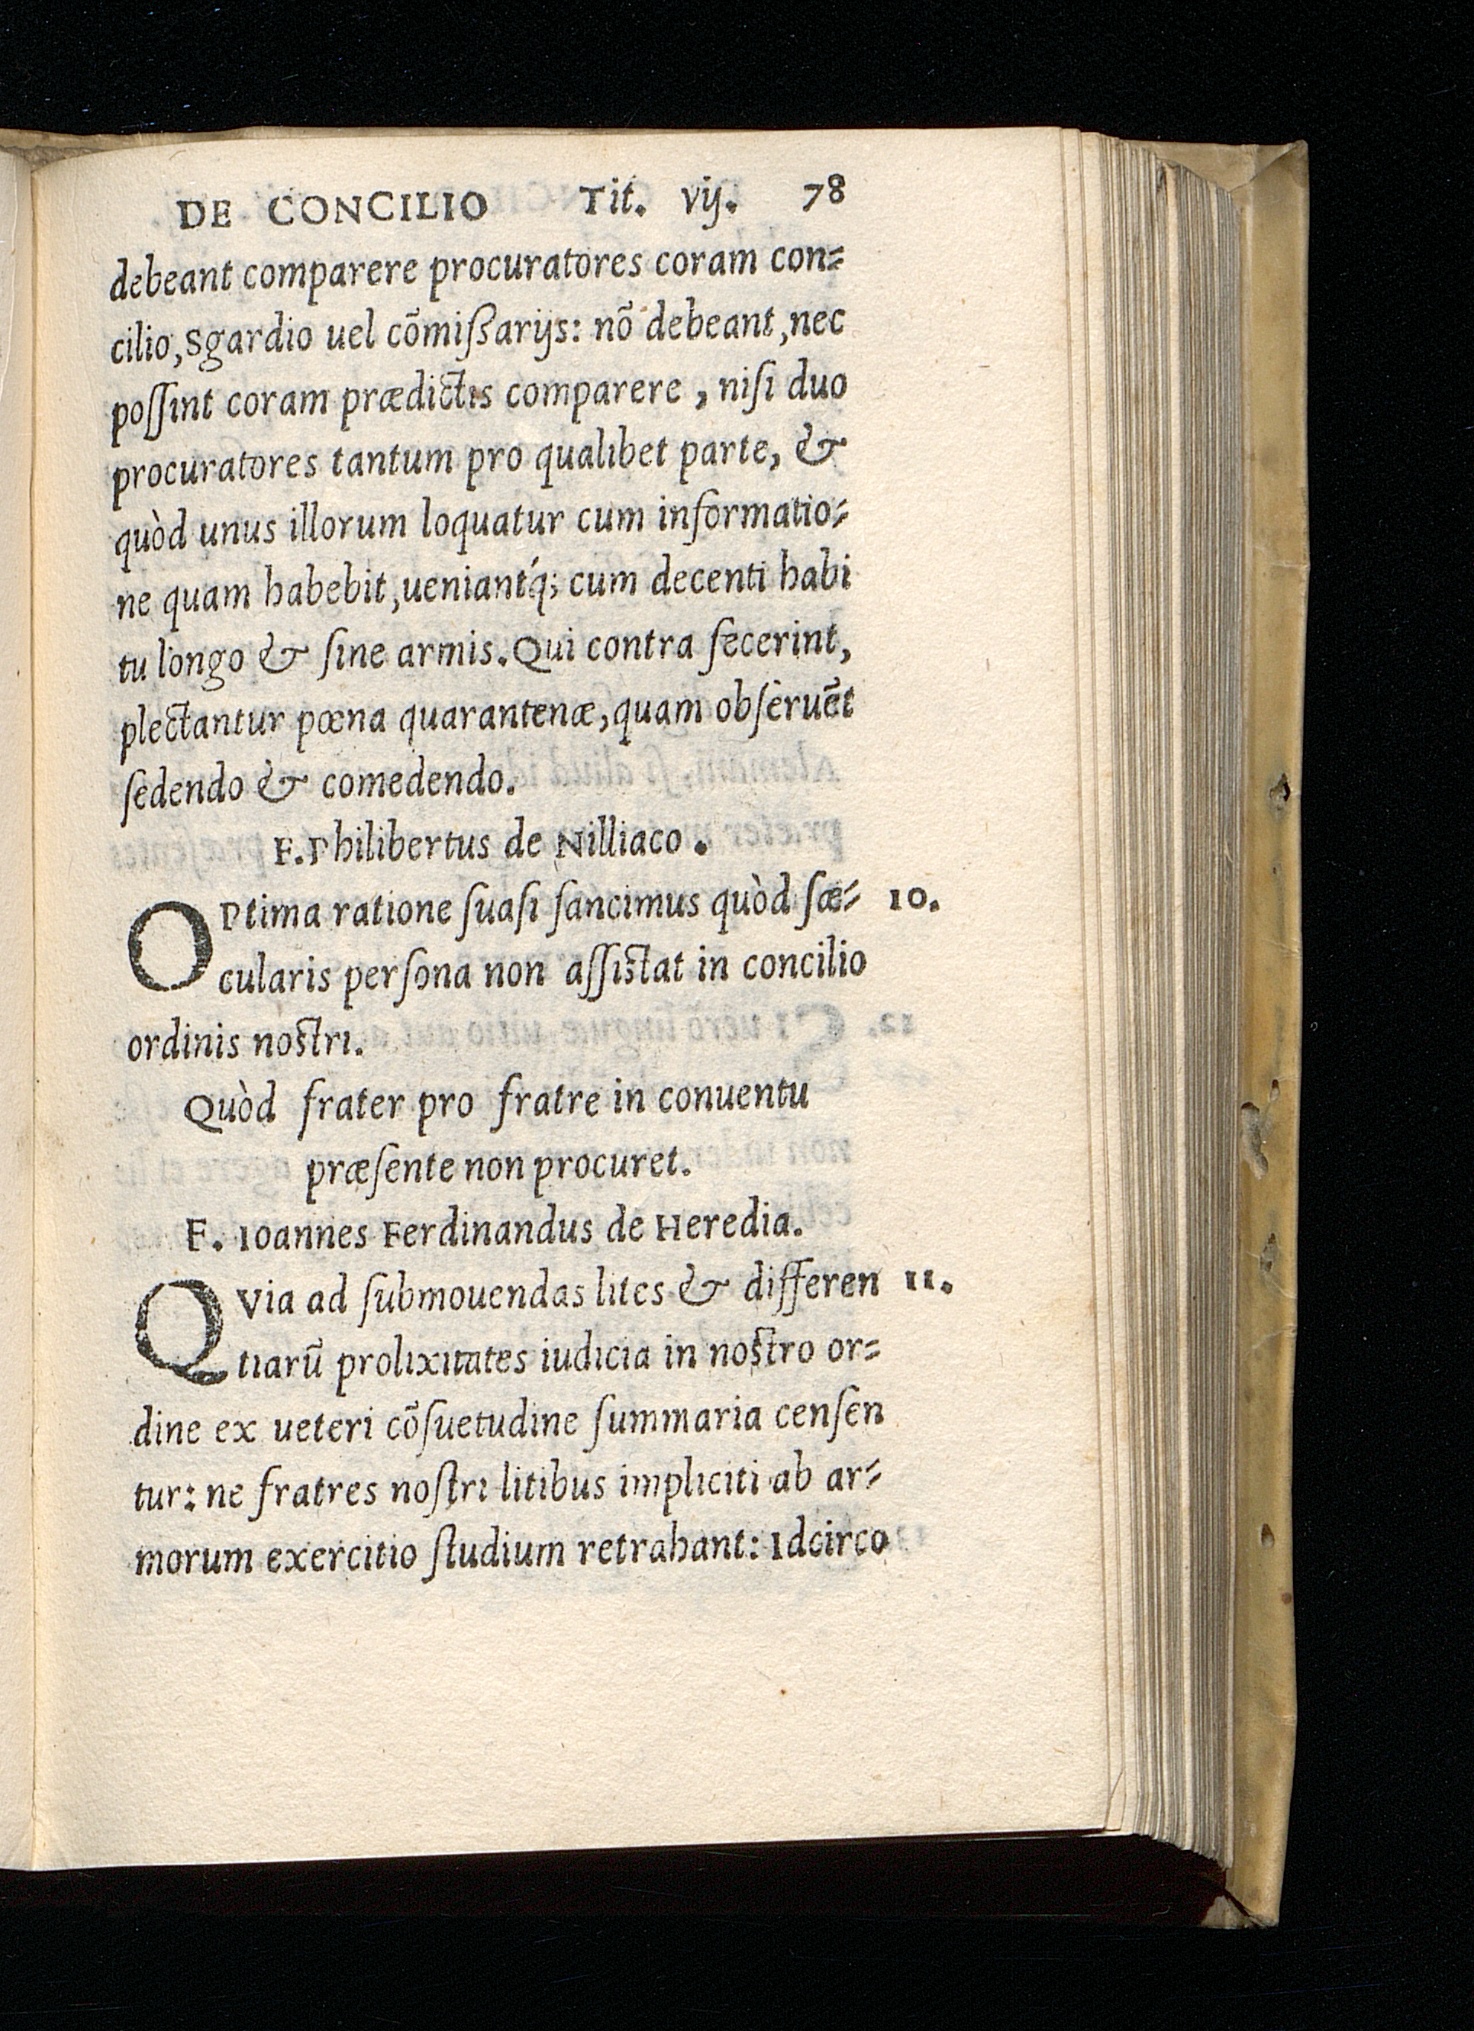 DE CONCILIO Tit. vij. 78
debeant comparere procuratores coram con-
cilio, Sgardio uel cõmißarijs: nõ debeant, nec
poſſint coram prædictis comparere, niſi duo
procuratores tantum pro qualibet parte, &
quòd unus illorum loquatur cum informatio-
ne quam habebit, ueniantq́; cum decenti habi
tu longo & ſine armis. Qui contra fecerint,
plectantur pœna quarantenæ, quam obſeruẽt
ſedendo & comedendo.
F. Philibertus de Nilliaco.
OPtima ratione ſuaſi ſancimus quòd ſæ- 10.
cularis perſona non aſſistat in concilio
ordinis nostri.
Quòd frater pro fratre in conuentu
præſente non procuret.
F. Ioannes Ferdinandus de Heredia.
QVia ad ſubmouendas lites & differen 11.
tiarũ prolixitates iudicia in nostro or-
dine ex ueteri cõſuetudine ſummaria cenſen
tur: ne fratres noſtri litibus impliciti ab ar-
morum exercitio ſtudium retrahant: Idcirco